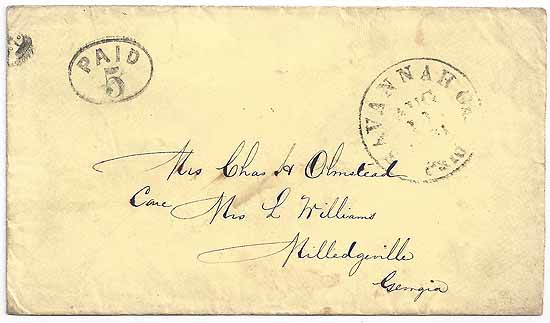 PAID
5
SAVANNAH Ga.
AUG
PAID
Mrs Chas H Olmstead
Care Mrs L Williams
Milledgeville
Georgia